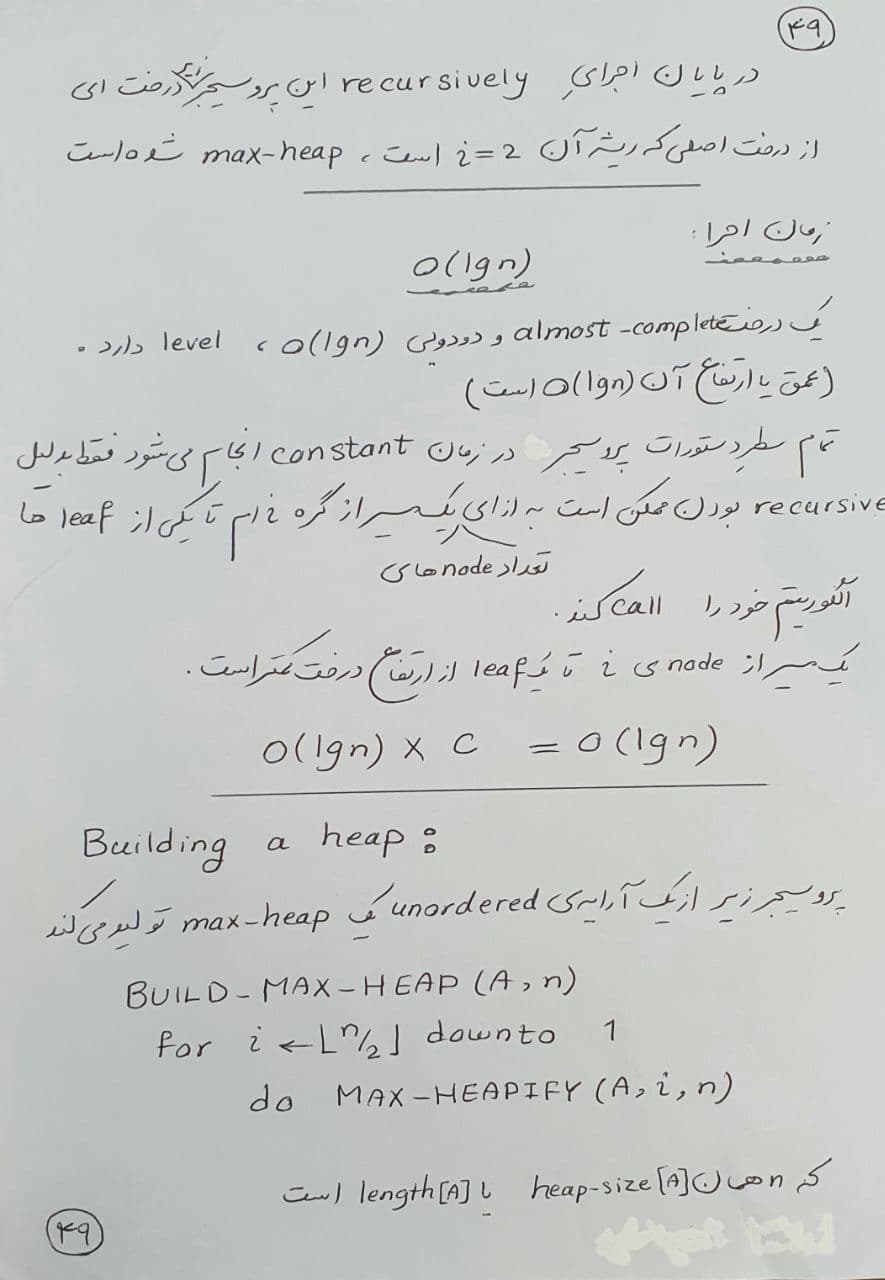 ۴۹
در پایان اجرایِ recursively این پروسیجر زیر درخت ای
از درخت اصلی که ریشه آن i=2 است ، max-heap شده است
زمان اجرا :
O(lgn)
یک درخت almost-complete و دودویی O(lgn) ، level دارد .
(عمق یا ارتفاع آن O(lgn) است)
تمام سطرِ دستورات پروسیجر در زمان constant انجام می‌شود فقط بدلیل
recursive بودن ممکن است به ازای یک مسیر از گره i ام تا یکی از leaf ها
تعداد node های
الگوریتم خود را call کند .
یک مسیر از node ی i تا یک leaf از ارتفاع درخت کمتر است .
O(lgn) × C = O(lgn)
Building a heap :
پروسیجر زیر از یک آرایه‌ی unordered یک max-heap تولید می‌کند
BUILD-MAX-HEAP (A,n)
for i ← ⌊n/2⌋ downto 1
do MAX-HEAPIFY (A,i,n)
که n همان heap-size[A] یا length[A] است
۴۹